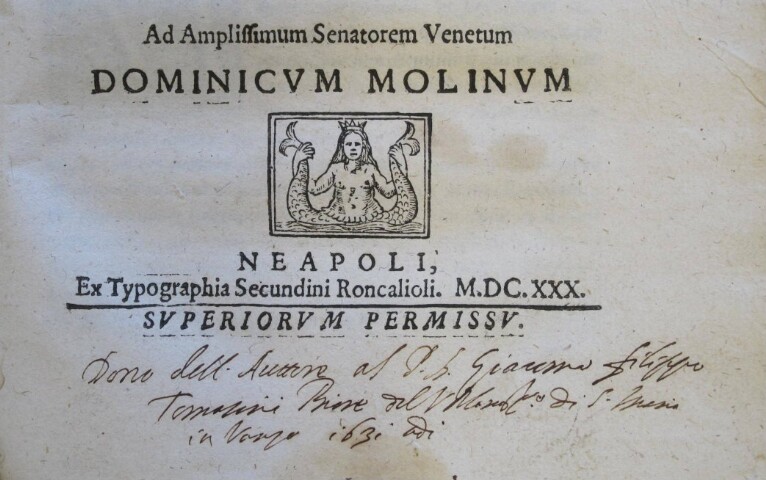 Ad Ampliſſimum Senatorem Venetum
DOMINICVM MOLINVM
NEAPOLI,
Ex Typographia Secundini Roncalioli. M.DC.XXX.
SVPERIORVM PERMISSV.
Dono dell' Auttore al P. Giacomo Filippo
Tomasini Priore del di S.
in Vanzo 1631 adi